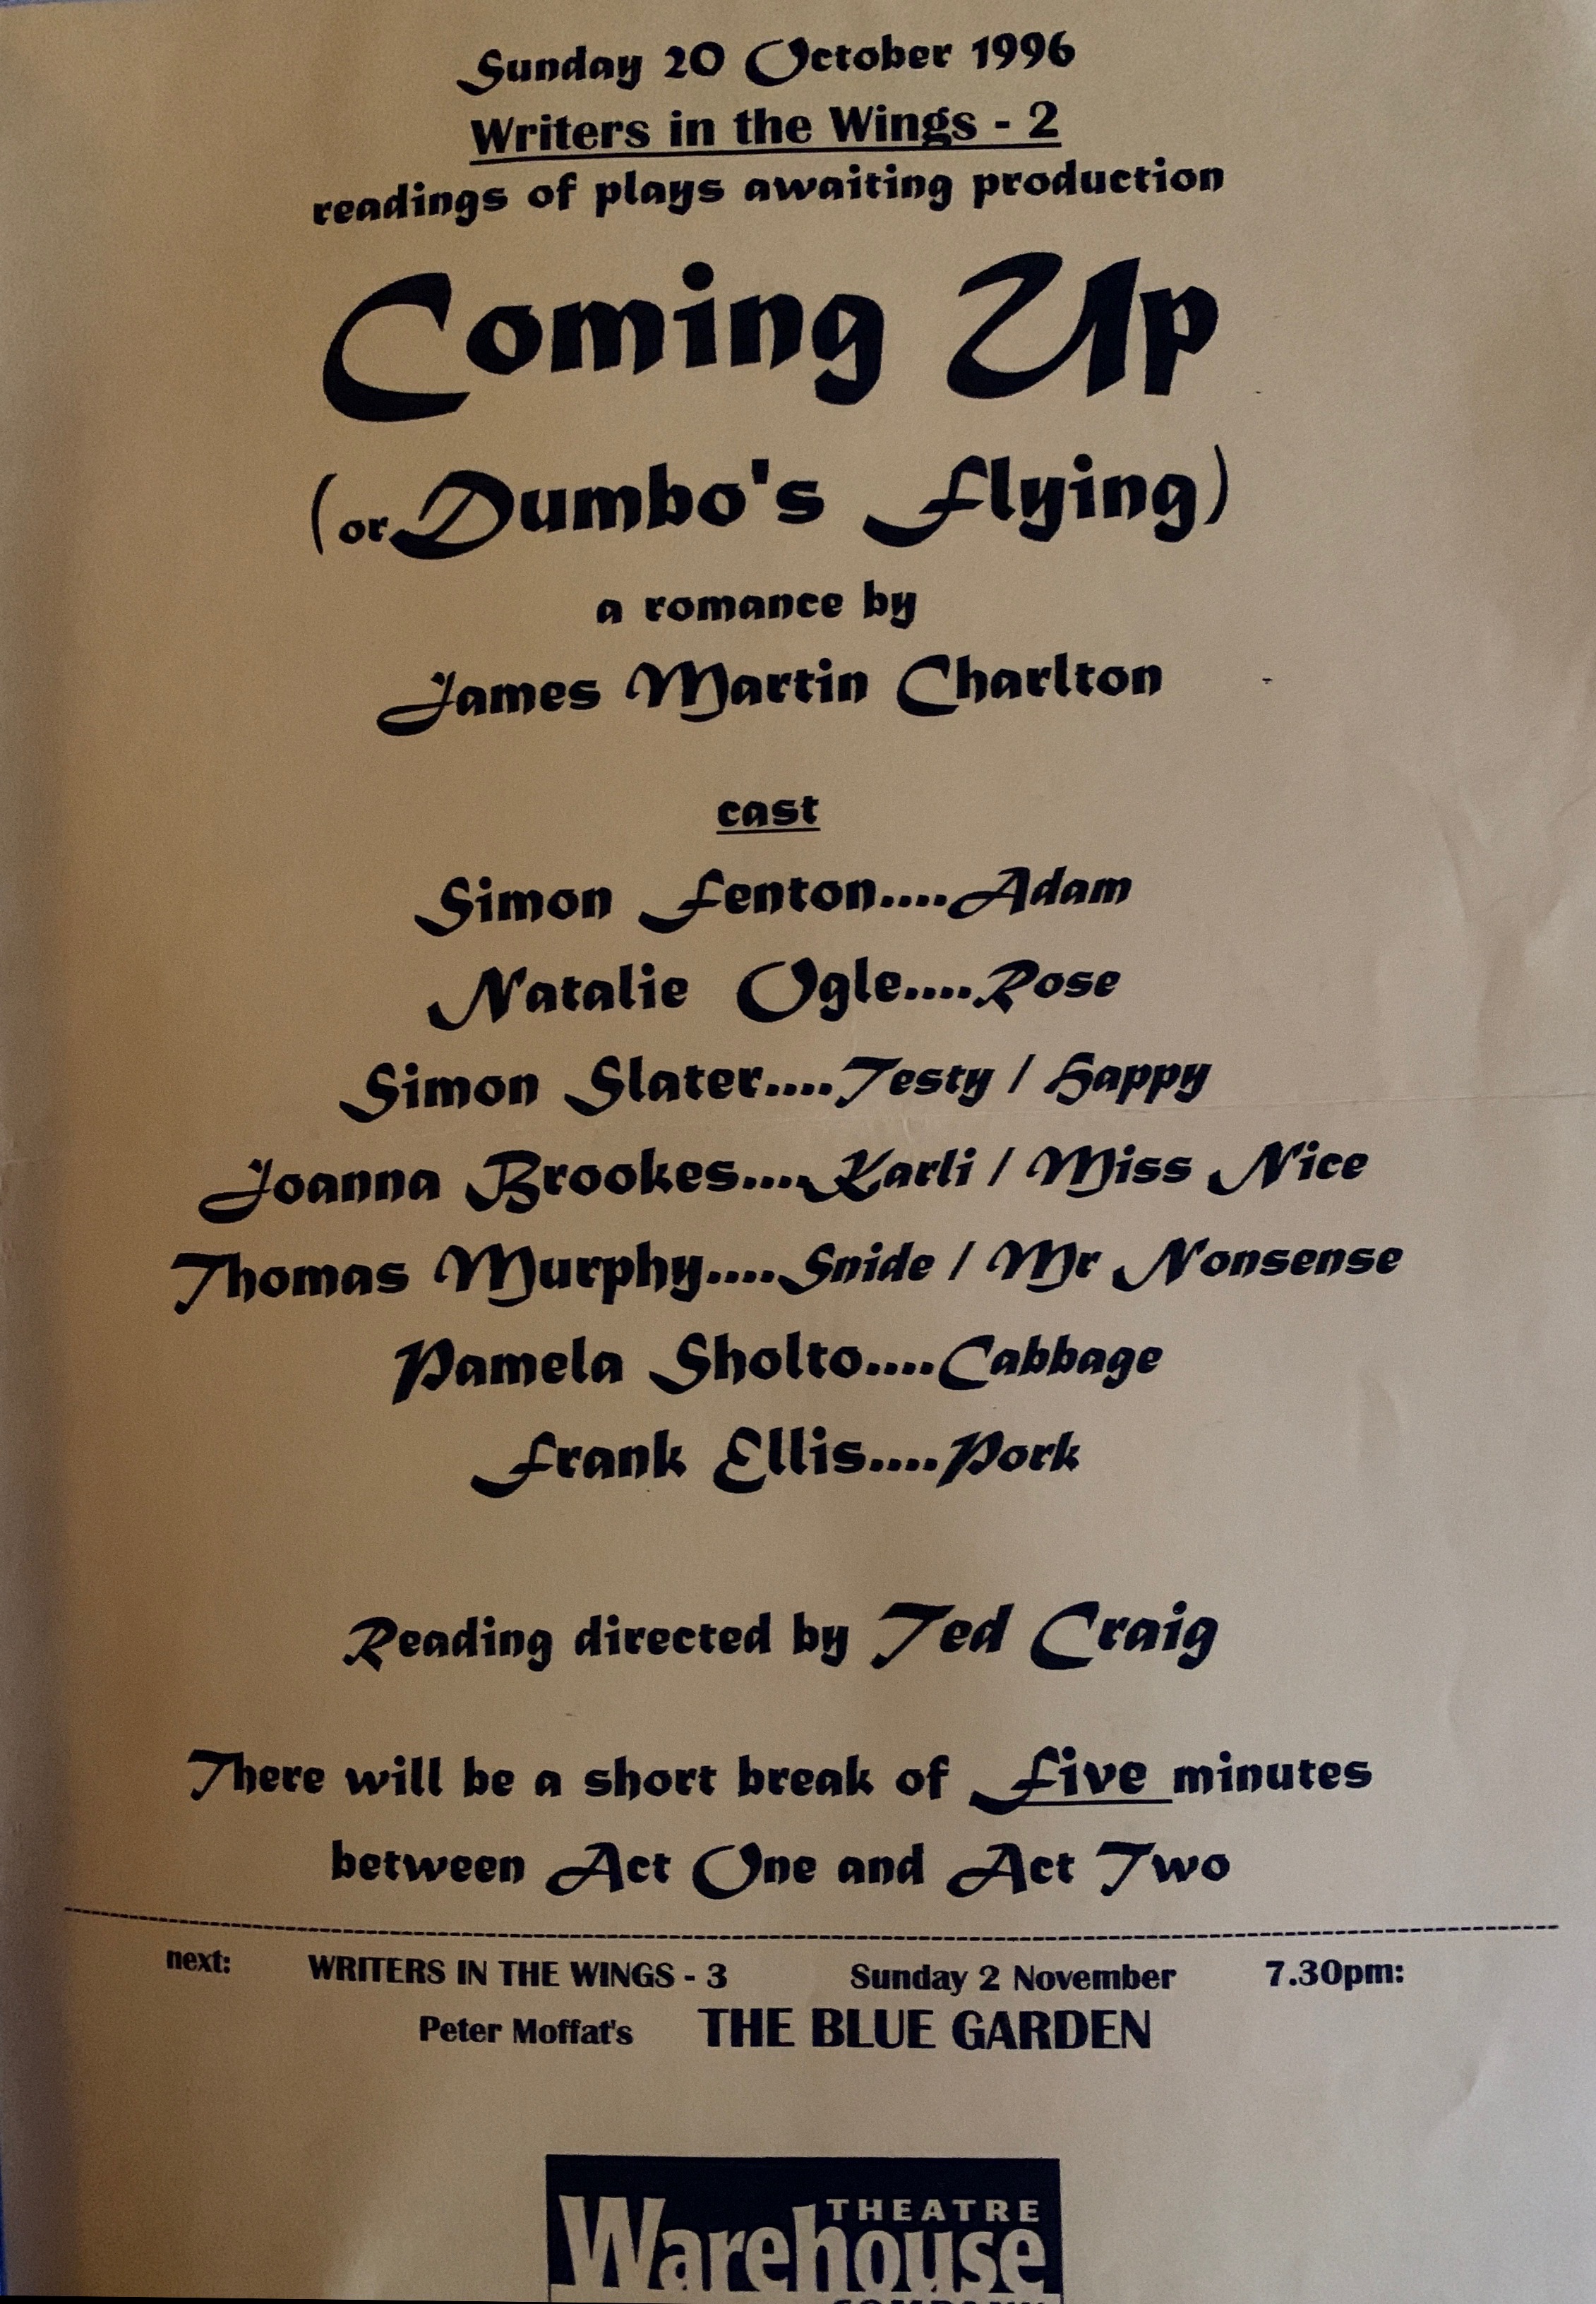 Sunday 20 October 1996
Writers in the Wings - 2
readings of plays awaiting production
Coming Up
(or Dumbo's Flying)
a romance by
James Martin Charlton
cast
Simon Fenton....Adam
Natalie Ogle....Rose
Simon Slater....Testy / Happy
Joanna Brookes....Karli / Miss Nice
Thomas Murphy....Snide / Mr Nonsense
Pamela Sholto....Cabbage
Frank Ellis....Pork
Reading directed by Ted Craig
There will be a short break of Five minutes
between Act One and Act Two
next: WRITERS IN THE WINGS - 3 Sunday 2 November 7.30pm:
Peter Moffat's THE BLUE GARDEN
THEATRE
Warehouse